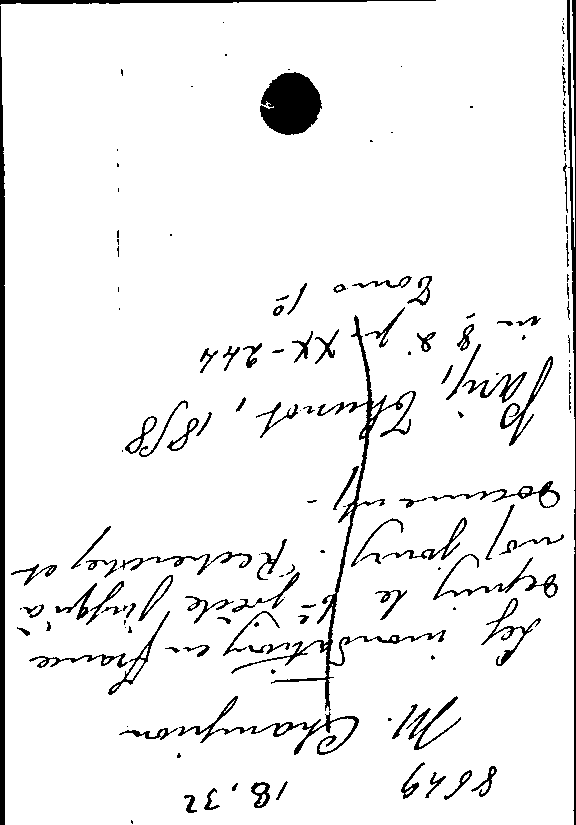 8649 18.32
M. Champion
Les inondations en France
depuis le 6e siècle jusqu'à
nos jours. Recherches et
documents.
Paris, Thunot, 1858
in 8º de pp XX-244
Tomo 1º